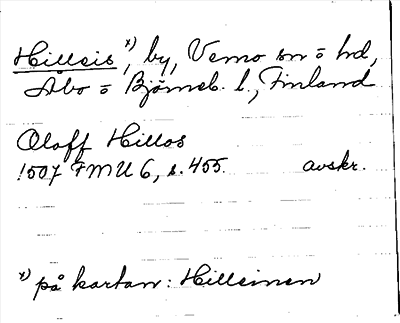 Hilleis x), by, Vemo sn o hd,
Åbo o Björneb. l., Finland
Oloff Hillos
1507 FMU 6, s. 455. avskr.
x) på kartan: Hilleinen